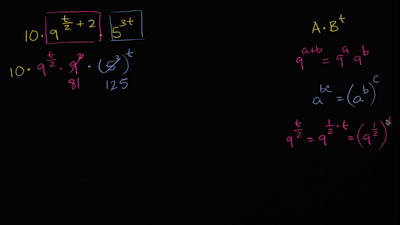 10 · 9^(t/2 + 2) · 5^(3t)
10 · 9^(t/2) · 9^2 · (5^3)^t
81 125
A · B^t
9^(a+b) = 9^a 9^b
a^(bc) = (a^b)^c
9^(t/2) = 9^(1/2 · t) = (9^(1/2))